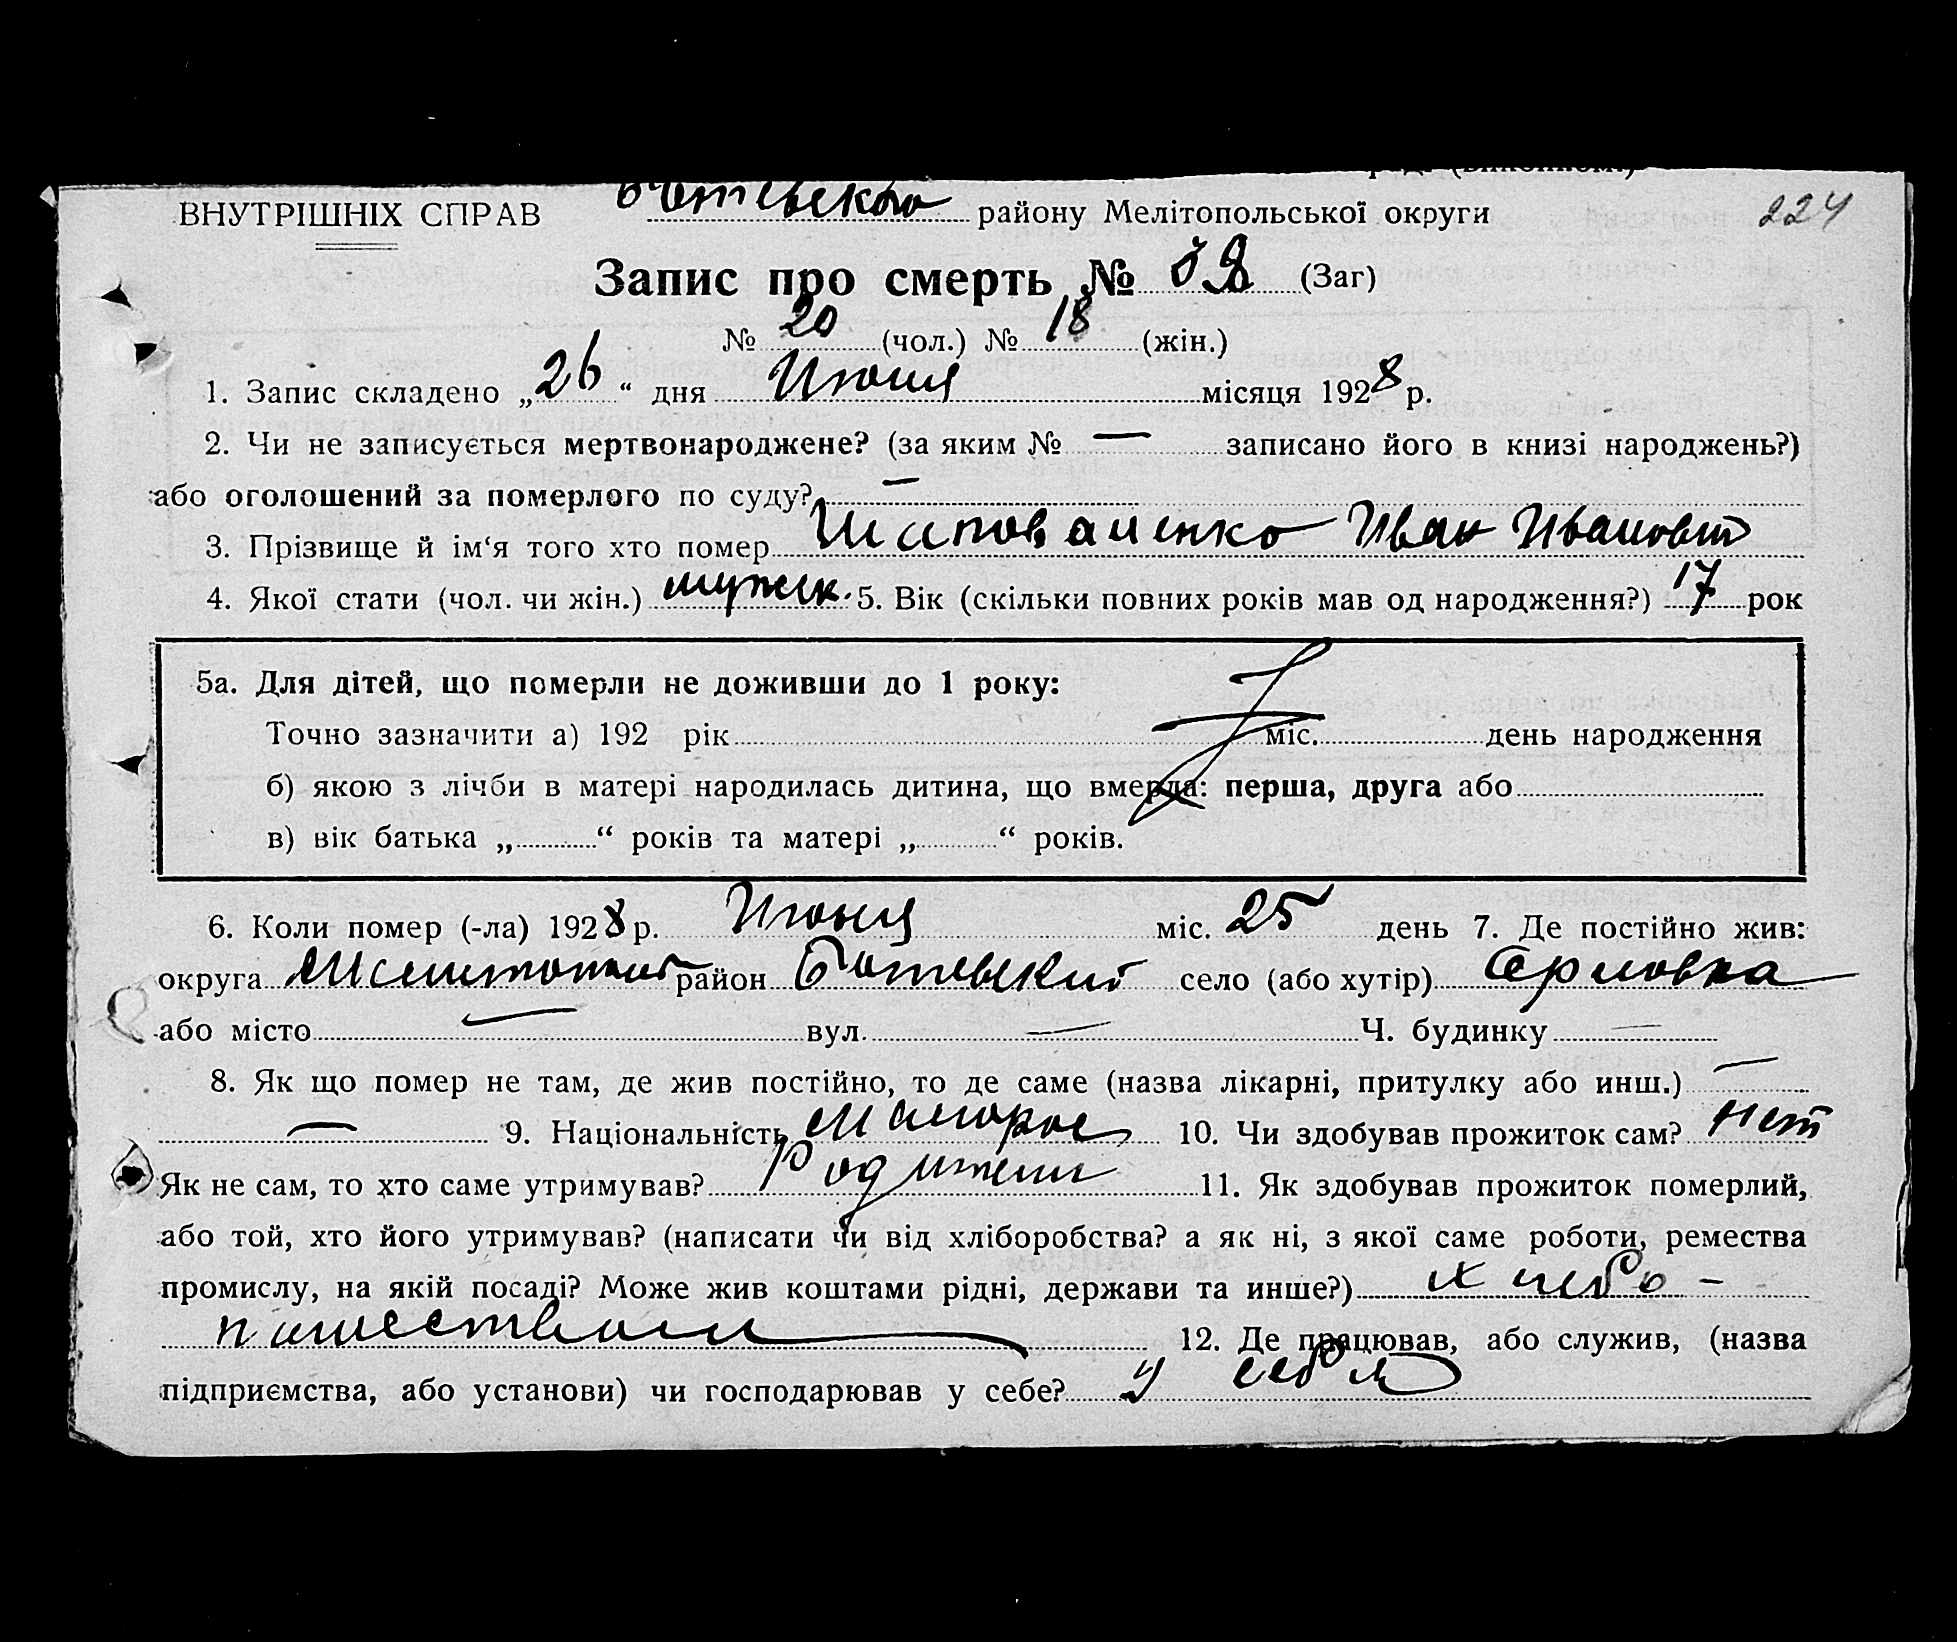 ВНУТРІШНІХ СПРАВ Ботевского району Мелітопольської округи 224
Запис про смерть № 38 (Заг)
№ 20 (чол.) № 18 (жін.)
1. Запис складено „26“ дня Июня місяця 1928 р.
2. Чи не записується мертвонароджене? (за яким № — записано його в книзі народжень?)
або оголошений за померлого по суду? —
3. Прізвище й ім‘я того хто помер Шаповаленко Иван Иванович
4. Якої стати (чол. чи жін.) мужск. 5. Вік (скільки повних років мав од народження?) 17 рок
5а. Для дітей, що померли не доживши до 1 року:
Точно зазначити а) 192 рік міс. день народження
б) якою з лічби в матері народилась дитина, що вмерла: перша, друга або
в) вік батька „ “ років та матері „ “ років.
6. Коли помер (-ла) 1928 р. Июня міс. 25 день 7. Де постійно жив:
округа район Ботевский село (або хутір)
або місто — вул. — Ч. будинку —
8. Як що помер не там, де жив постійно, то де саме (назва лікарні, притулку або инш.) —
— 9. Національність Малорос 10. Чи здобував прожиток сам? нет
Як не сам, то хто саме утримував? Родители 11. Як здобував прожиток померлий,
або той, хто його утримував? (написати чи від хліборобства? а як ні, з якої саме роботи, ремества
промислу, на якій посаді? Може жив коштами рідні, держави та инше?) хлебо-
пашеством 12. Де працював, або служив, (назва
підприємства, або установи) чи господарював у себе? у себя